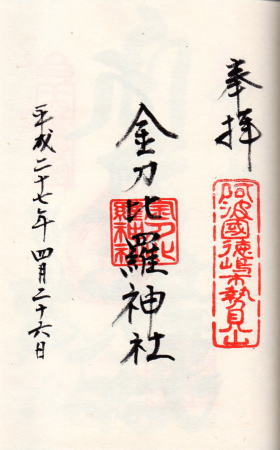 奉拝
阿波國徳島市勢見山
金刀比羅神社
金刀比羅神社
平成二十七年四月二十六日